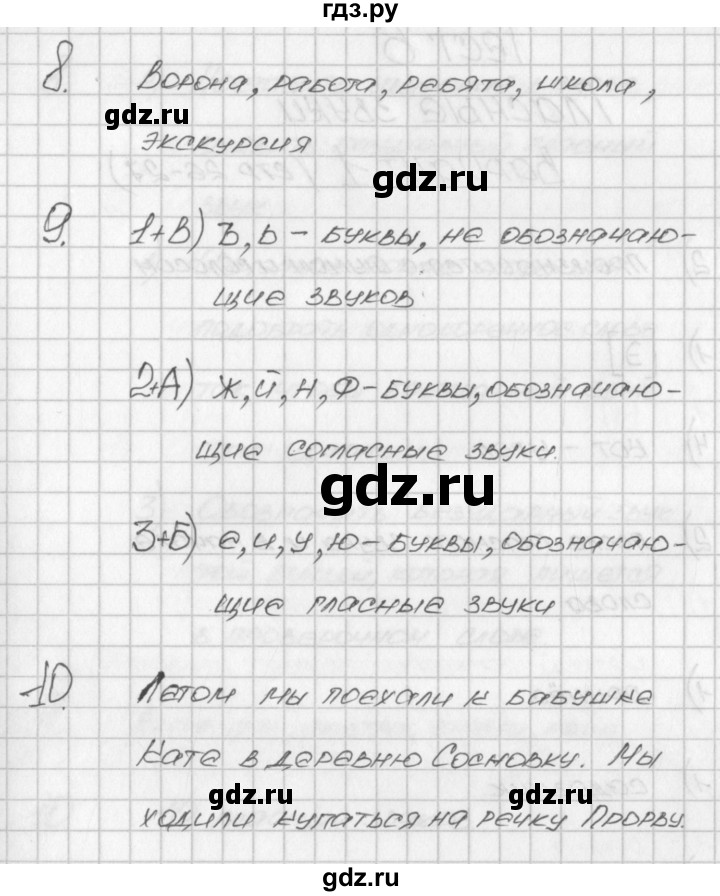 гдз.ру
8. Ворона, работа, ребята, школа,
gdz.ru
экскурсия
gdz.ru
9. 1+В) Ъ, Ь - буквы, не обозначаю-
щие звуков
2+А) Ж, Й, Н, Ф - буквы, обозначаю-
щие согласные звуки.
gdz.ru
3+Б) е, и, у, ю - буквы, обозначаю-
щие гласные звуки
10. Летом мы поехали к бабушке
Кате в деревню Сосновку. Мы
gdz.ru gdz.ru
ходили купаться на речку Прорву.
gdz.ru